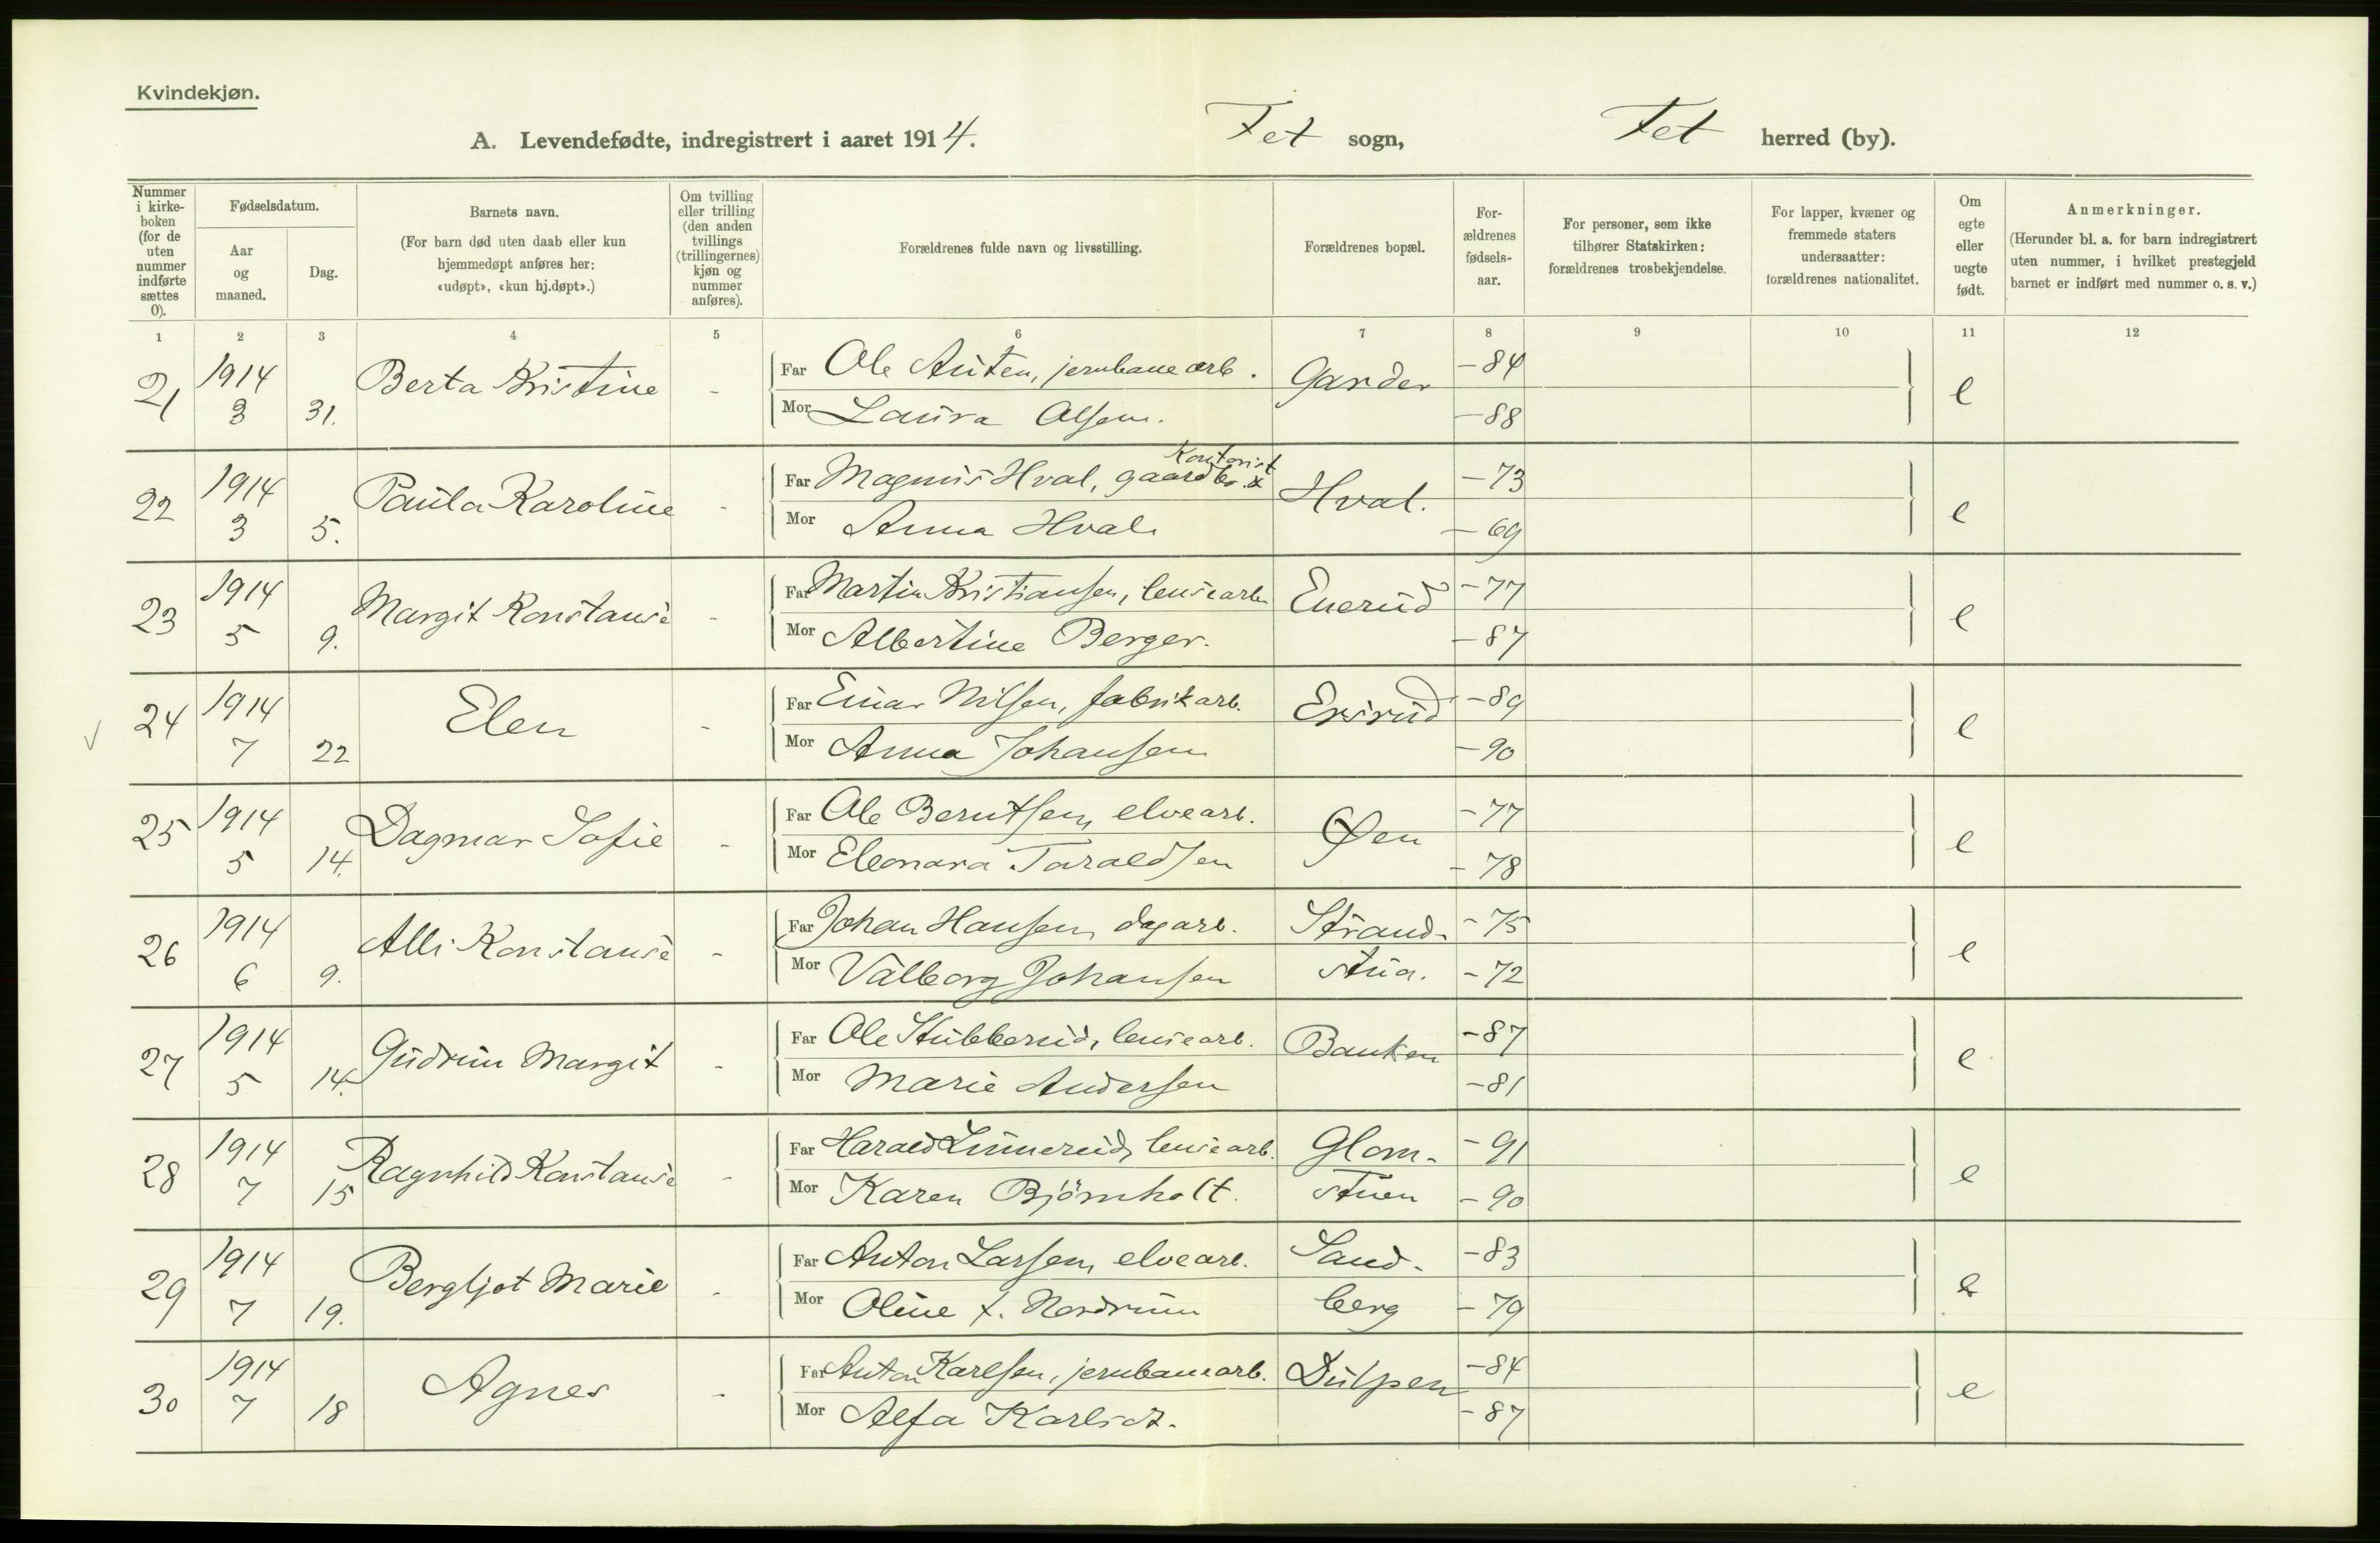 Kvindekjøn.
A. Levendefødte, indregistrert i aaret 1914. Fet sogn, Fet herred (by).
Nummer i kirke-boken (for de uten nummer indførte sættes 0).
Fødselsdatum.
Aar og maaned.
Dag.
Barnets navn.
(For barn død uten daab eller kun hjemmedøpt anføres her: «udøpt», «kun hj.døpt».)
Om tvilling eller trilling (den anden tvillings (trillingernes) kjøn og nummer anføres).
Forældrenes fulde navn og livsstilling.
Forældrenes bopæl.
For-ældrenes fødsels-aar.
For personer, som ikke tilhører Statskirken: forældrenes trosbekjendelse.
For lapper, kvæner og fremmede staters undersaatter: forældrenes nationalitet.
Om egte eller uegte født.
Anmerkninger.
(Herunder bl. a. for barn indregistrert uten nummer, i hvilket prestegjeld barnet er indført med nummer o. s. v.)
1 2 3 4 5 6 7 8 9 10 11 12
21 1914 3 31. Berta Kristine - Far Ole Auten, jernbanearb. Garder -84 e
Mor Laura Olsen. -88
22 1914 3 5. Paula Karoline - Far Magnus Hval, gaardbr. & Kontorist Hval. -73 e
Mor Anna Hval. -69
23 1914 5 9. Margit Konstanse - Far Martin Kristiansen, lensearb. Enerud -77 e
Mor Albertine Berger. -87
24 1914 7 22 Elen - Far Einar Nilsen, fabrikarb. -89 e
Mor Anna Johansen -90
25 1914 5 14. Dagmar Sofie - Far Ole Berntsen, elvearb. Øen -77 e
Mor Eleonora Taraldsen -78
26 1914 6 9. Alli Konstanse - Far Johan Hansen, dagarb. Strand- -75 e
Mor Valborg Johansen stua. -72
27 1914 5 14. Gudrun Margit - Far Ole Stubberud, lensearb. Banken -87 e
Mor Marie Andersen -81
28 1914 7 15 Ragnhild Konstanse - Far Harald Linnerud, lensearb. Glom- -91 e
Mor Karen Bjørnholt. stuen -90
29 1914 7 19. Bergljot Marie - Far Anton Larsen, elvearb. Sand- -83 e
Mor Oline f. Nordrum berg -79
30 1914 7 18 Agnes - Far Anton Karlsen, jernbanearb. Dulpen -84 e
Mor Alfa Karlsdt. -87